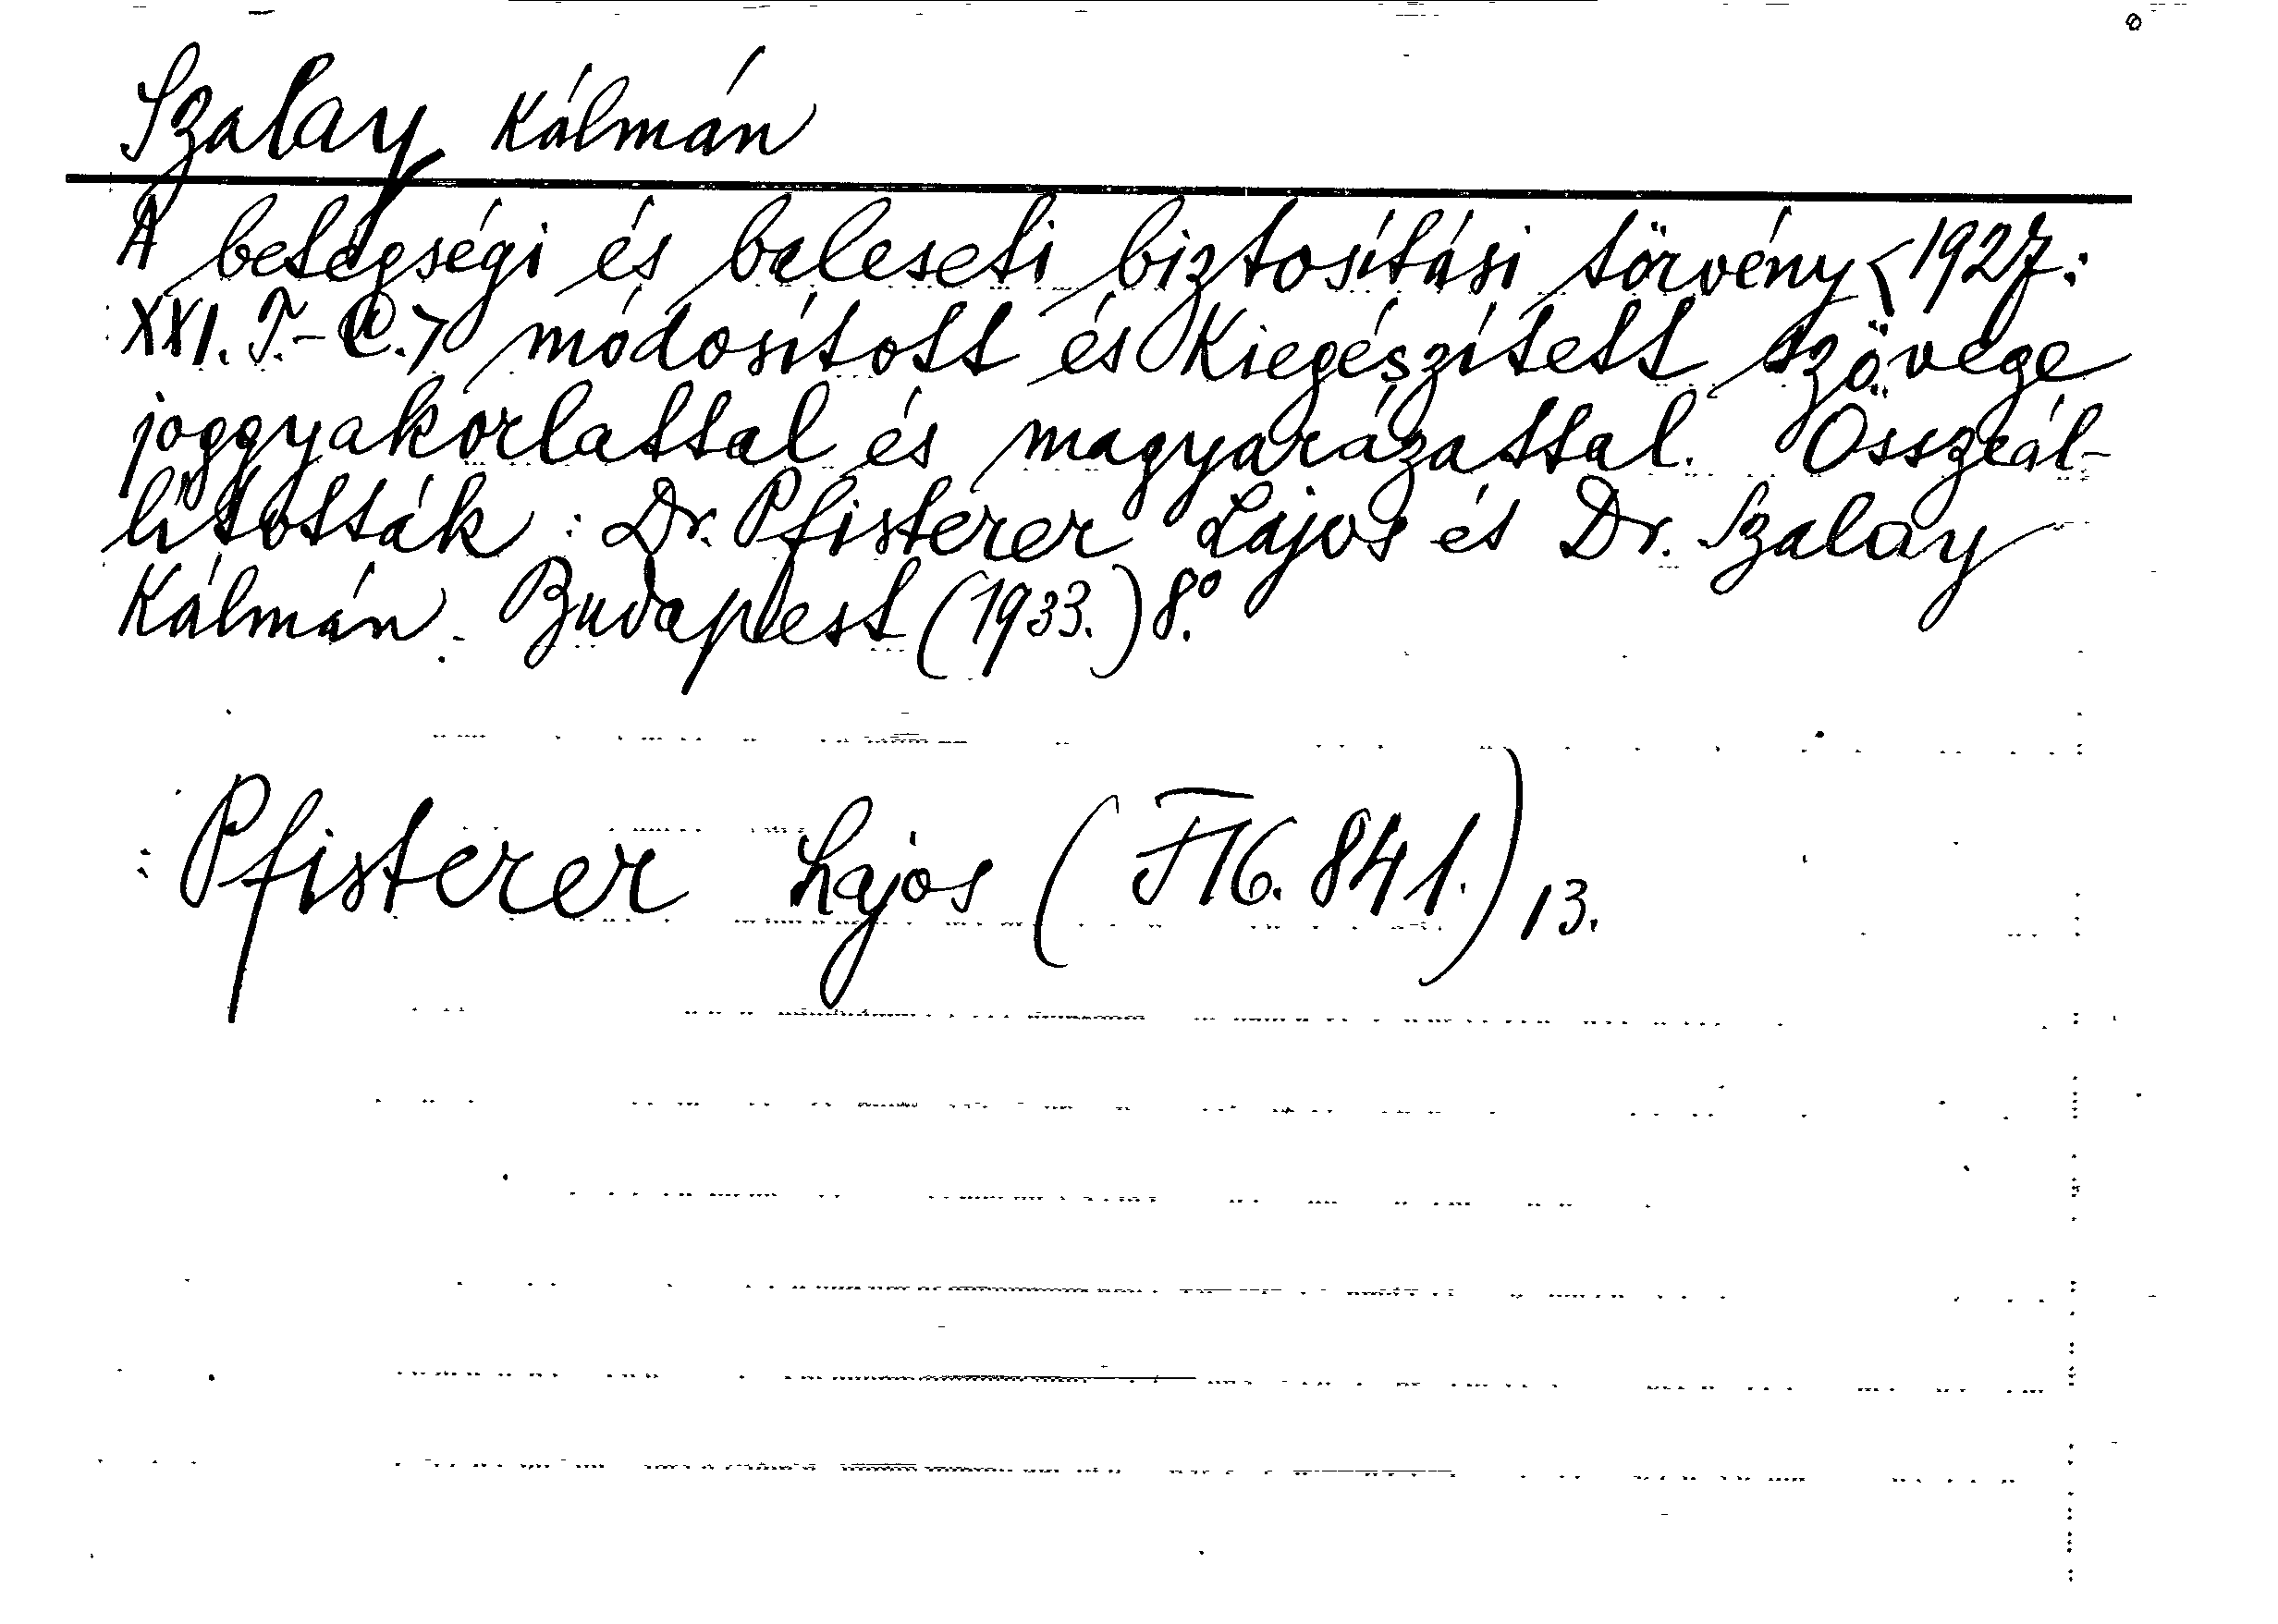 Szalay Kálmán
A betegségi és baleseti biztosítási törvény <1927:
XXI. T.-C.> módosított és kiegészített szövege
joggyakorlattal és magyarázattal. Összeál-
lították: Dr. Pfisterer Lajos és Dr. Szalay
Kálmán. Budapest (1933.) 8.°
Pfisterer Lajos (F16. 841.) 13.